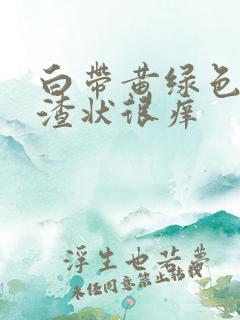 白带黄绿色
渣状很痒
浮生也若梦
未经同意禁止转载